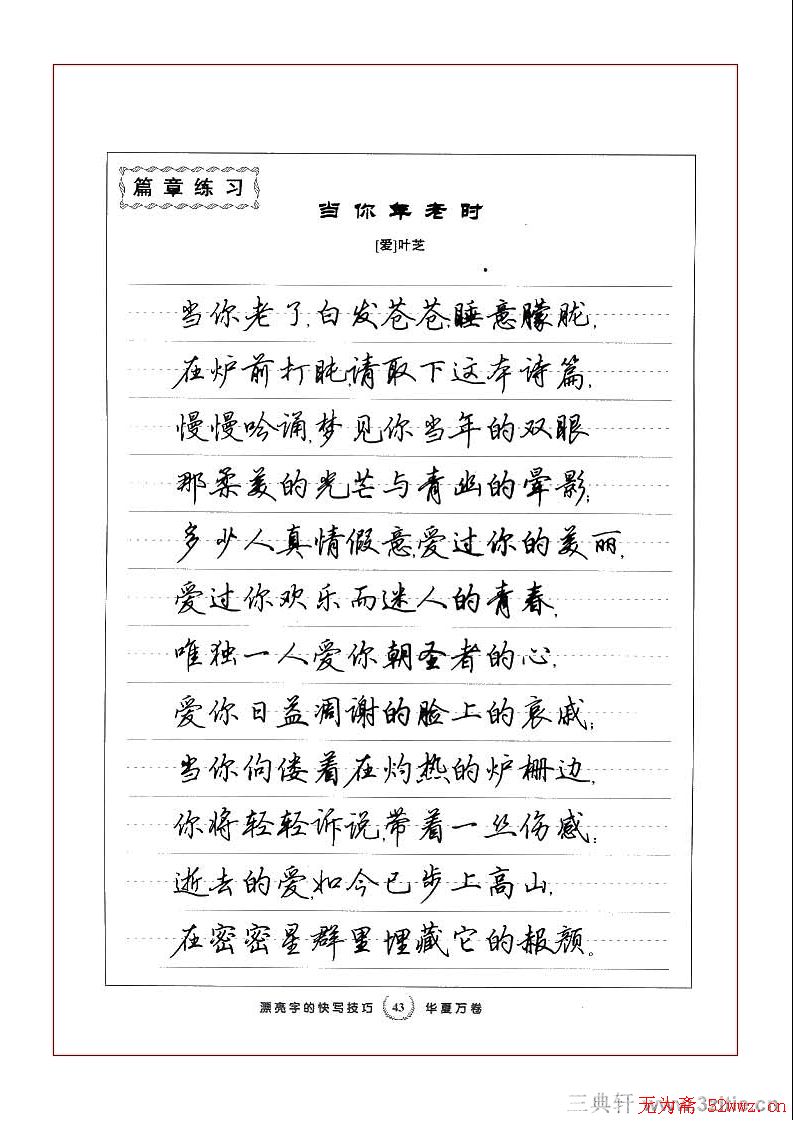 篇章练习
当你年老时
[爱]叶芝
当你老了,白发苍苍,睡意朦胧,
在炉前打盹,请取下这本诗篇,
慢慢吟诵,梦见你当年的双眼
那柔美的光芒与青幽的晕影;
多少人真情假意,爱过你的美丽,
爱过你欢乐而迷人的青春,
唯独一人爱你朝圣者的心,
爱你日益凋谢的脸上的哀戚;
当你佝偻着在灼热的炉栅边,
你将轻轻诉说,带着一丝伤感:
逝去的爱,如今已步上高山,
在密密星群里埋藏它的赧颜。
漂亮字的快写技巧 43 华夏万卷
三典轩
无为斋 52wwz.cn